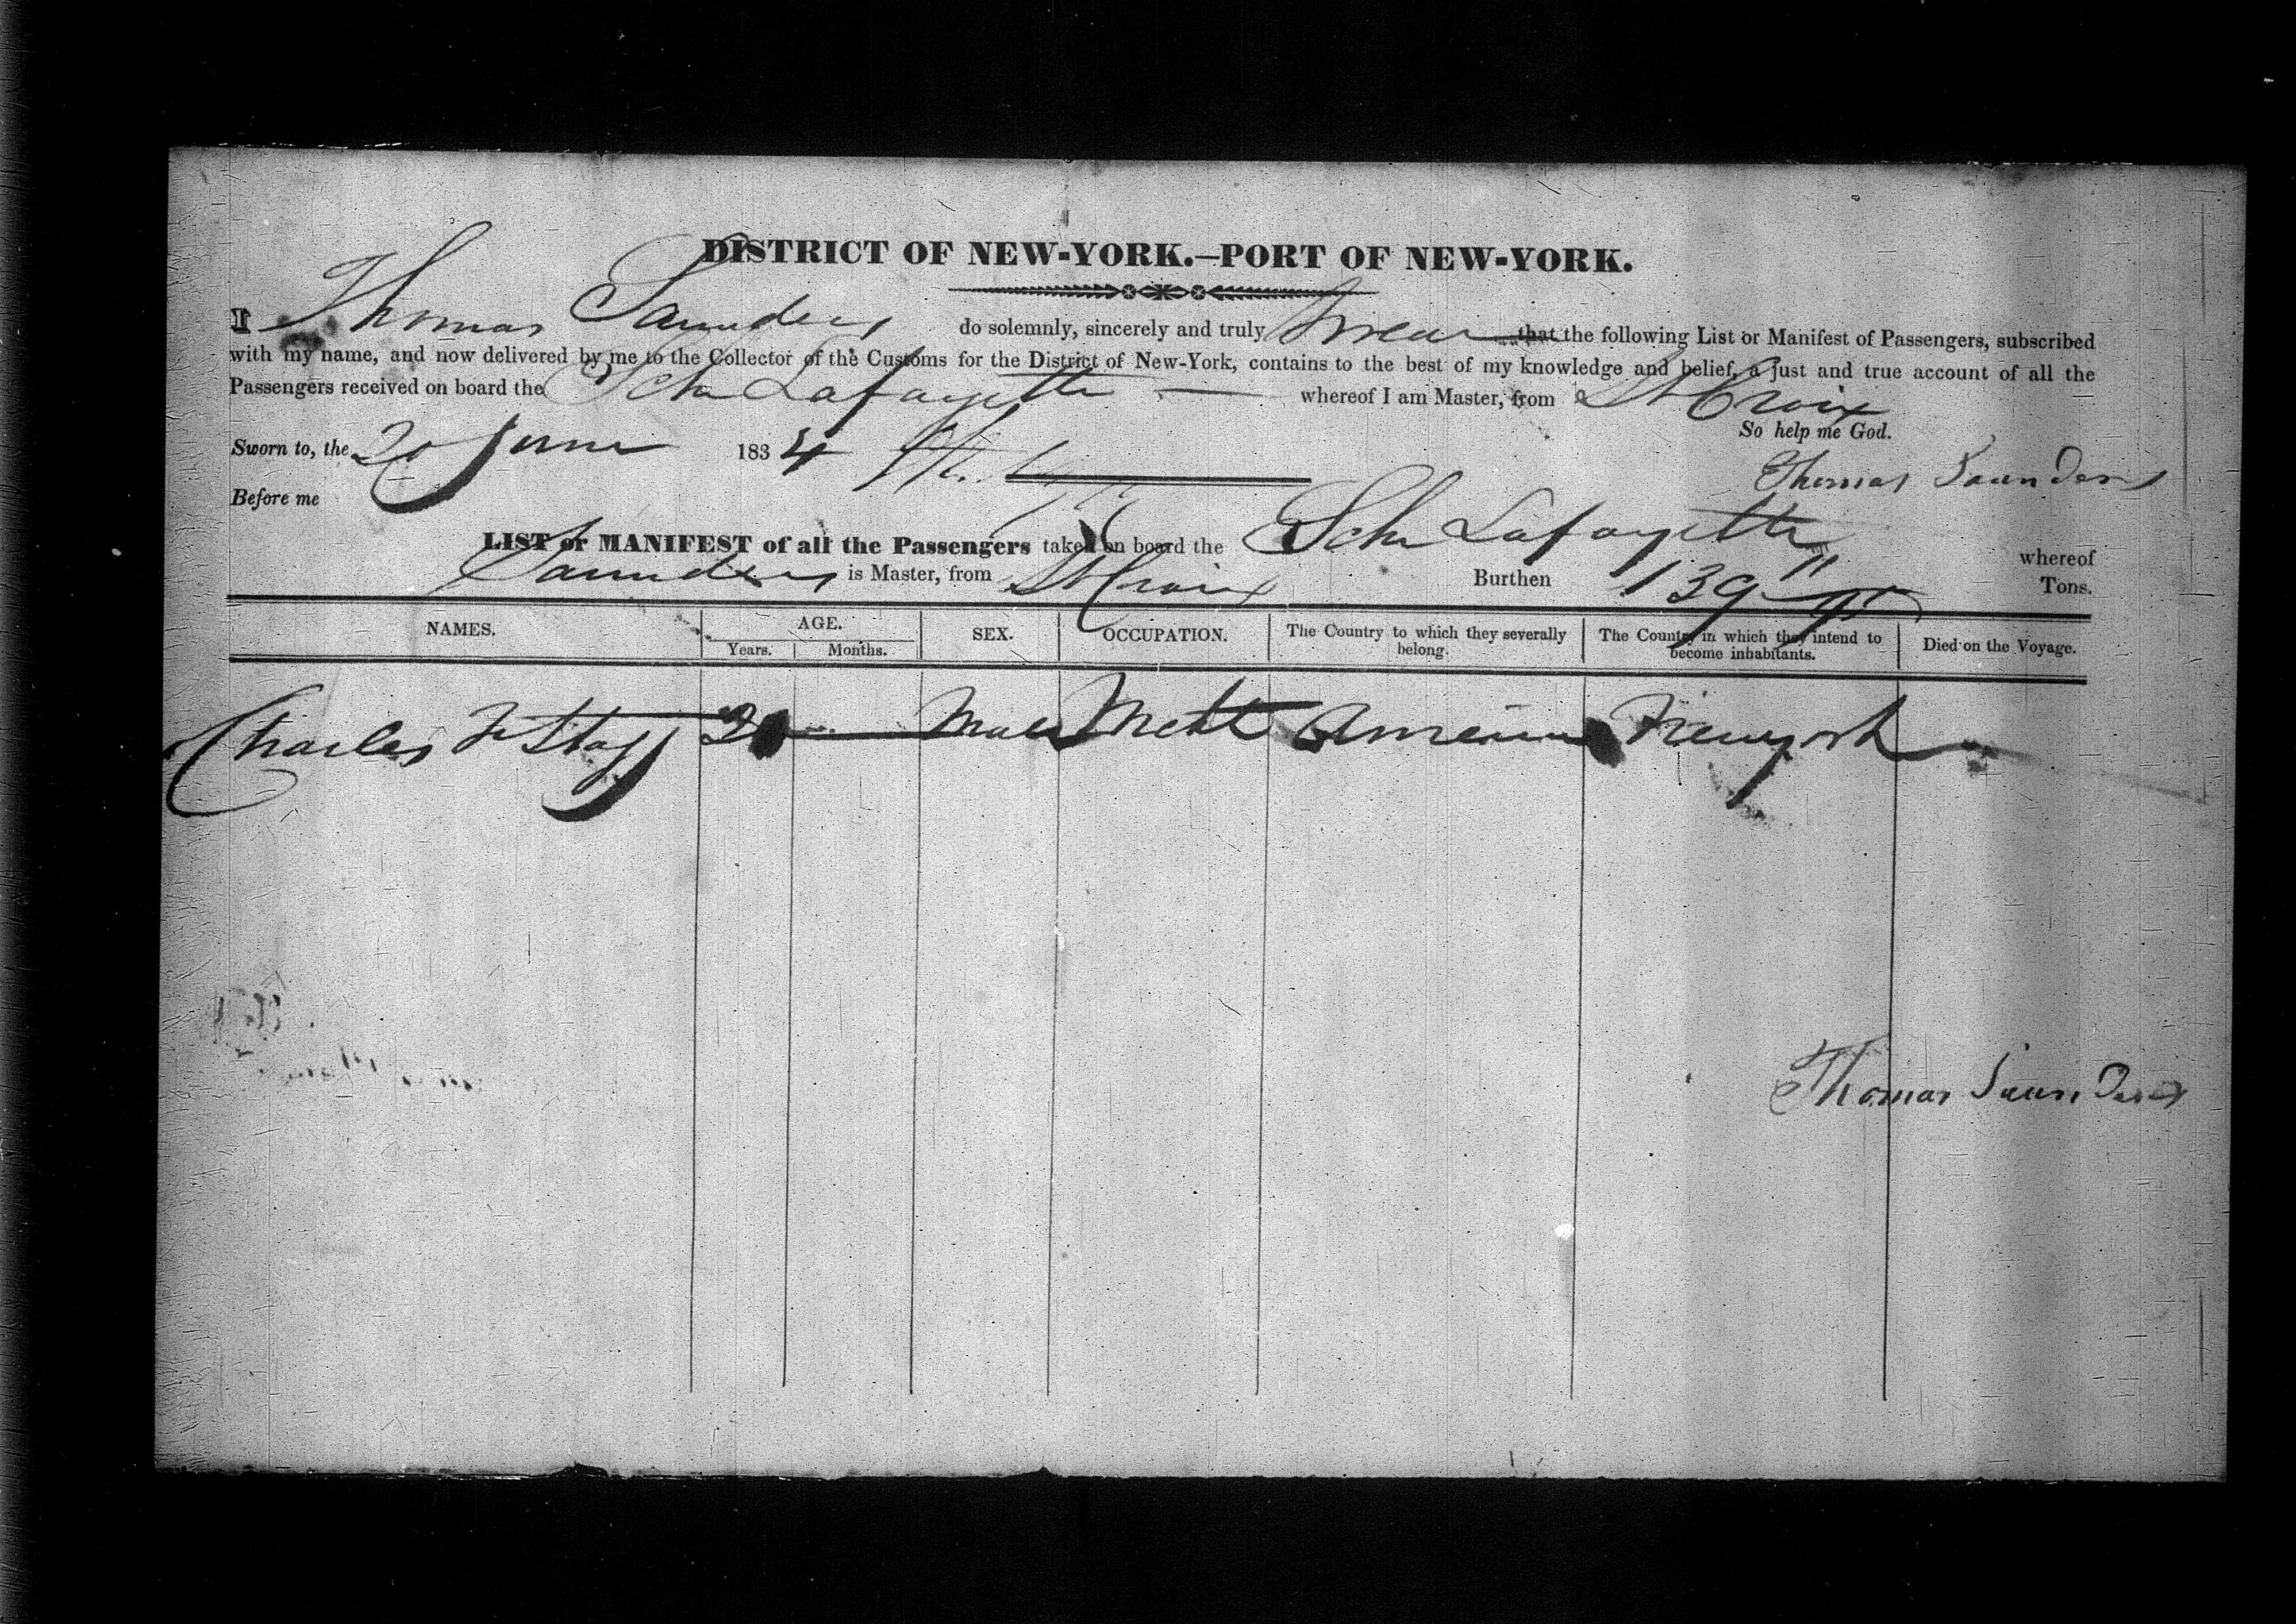 DISTRICT OF NEW-YORK.—PORT OF NEW-YORK.
I Thomas Saunders do solemnly, sincerely and truly Swear that the following List or Manifest of Passengers, subscribed
with my name, and now delivered by me to the Collector of the Customs for the District of New-York, contains to the best of my knowledge and belief, a just and true account of all the
Passengers received on board the Schr Lafayette whereof I am Master, from St Croix
So help me God.
Sworn to, the 20 June 1834
Thomas Saunders
Before me
LIST or MANIFEST of all the Passengers taken on board the Schr Lafayette whereof
Saunders is Master, from St Croix Burthen 139 Tons.
NAMES. AGE. SEX. OCCUPATION. The Country to which they severally belong. The Country in which they intend to become inhabitants. Died on the Voyage.
Years. Months.
Charles Male American Newyork
Thomas Saunders